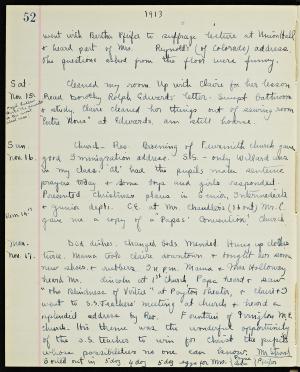 52
1913
went with Bertha Pfeifer to suffrage lecture at Union Hall
& heard part of Mrs. Reynolds' (of Colorado) address.
The questions asked from the floor were funny.
Sat.
Nov. 15.
Cleaned my room. Up with Claire for her lesson
Read Dorothy Rolph Edwards' letter. Swept bathroom
& study. Claire cleaned her things out of sewing room
"Entre Nous" at Edwards, am still hoarse.
Sun.
Nov. 16.
Church - Rev. Browning of Kenilworth church gave
good Immigration address. S.S. - only Willard was
in my class. "Al" had the pupils make sentence
prayers today & some boys and girls responded
Presented Christmas plans in Junior, Intermediate
& Junior depts. C.E. at Mr. Chandler's
gave me a copy of "Pages". Convention. Church
Mon.
Nov. 17.
Did dishes. Changed beds. Mended. Hung up clothes
twice. Mama took Claire downtown & bought her some
new shoes & rubbers. 2 & P.M. Mama & Miss Holloway
heard Mr. Lincoln at 1st church. Papa heard & saw
went to S.S. Teachers' meeting at church & heard a
splendid address by Rev. Fountain of Irvington M.E.
church. His theme was the wonderful opportunity
of the S.S. teacher to win for Christ the pupils
whose possibilities no one can know.